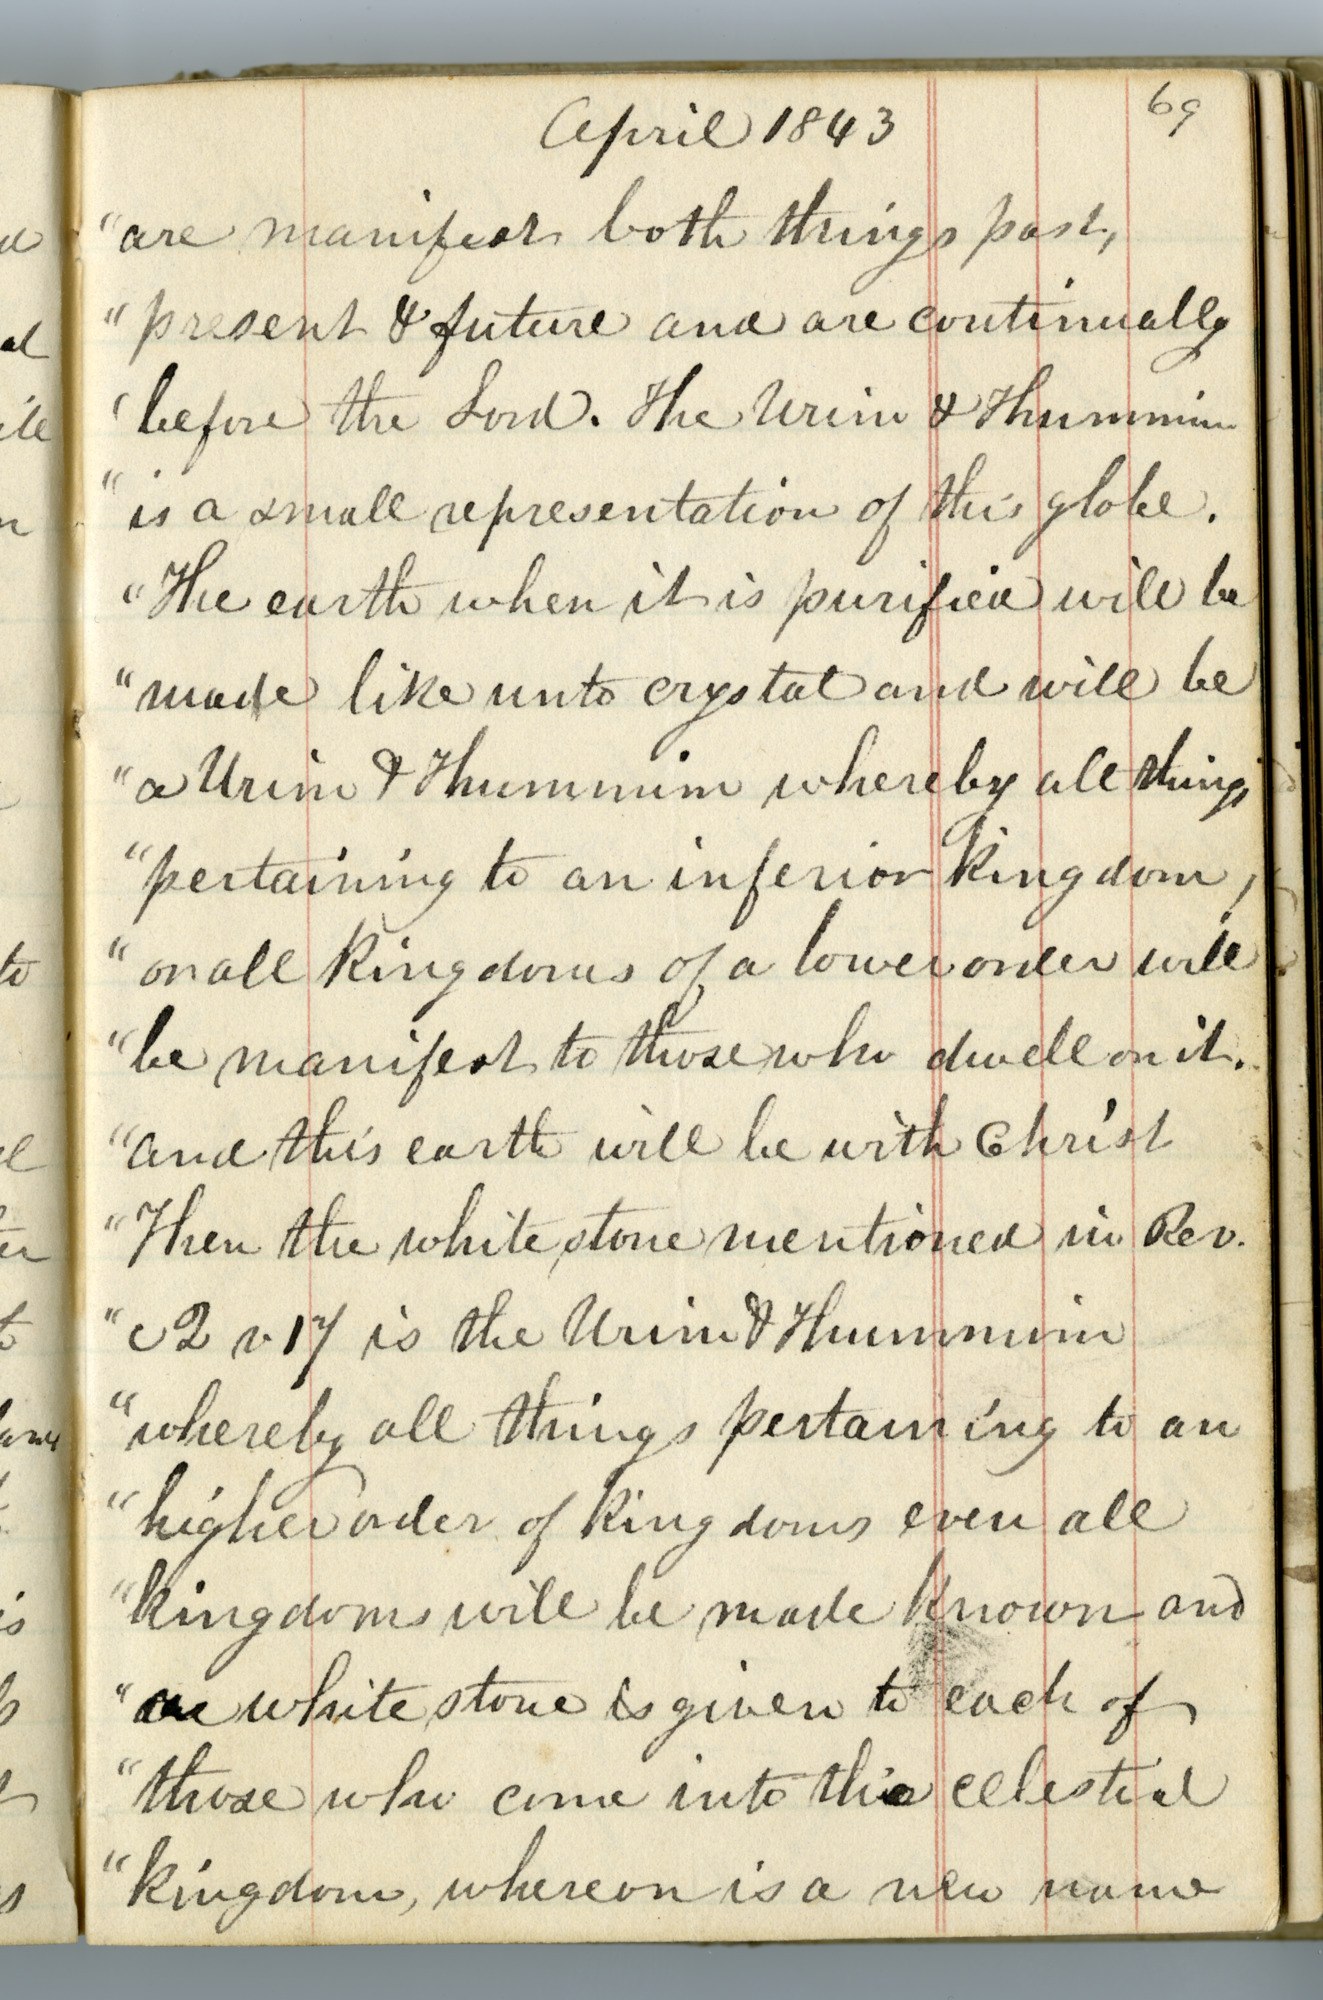 April 1843
69
"are manifest both things past,
"present & future and are continually
"before the Lord. The Urim & Thummim
"is a small representation of this globe.
"The earth when it is purified will be
"made like unto crystal and will be
"a Urim & Thummim whereby all things
"pertaining to an inferior kingdom,
"or all kingdoms of a lower order will
"be manifest to those who dwell on it.
"and this earth will be with Christ
"Then the white stone mentioned in Rev.
"c2 v17 is the Urim & Thummim
"whereby all things pertaining to an
"higher order of kingdoms even all
"kingdoms will be made known and
"a white stone is given to each of
"those who come into this celestial
"kingdom, whereon is a new name